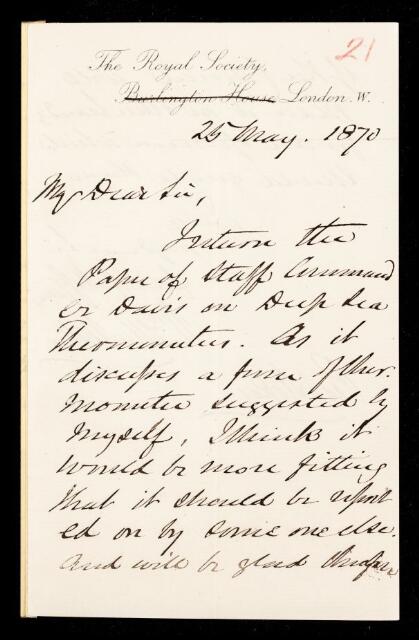 21
The Royal Society,
Burlington House London. W.
25 May. 1870
My Dear Sir,
I return the
Paper of Staff Command
er Davis on Deep Sea
Thermometers. As it
discusses a form of ther-
mometer suggested by
Myself, I think it
would be more fitting
that it should be report
ed on by some one else.
And will be glad therefore